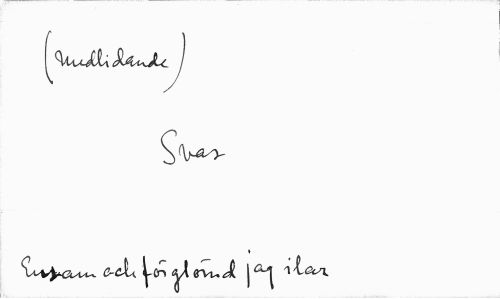 (medlidande)
Svar
Ensam och förglömd jag ilar